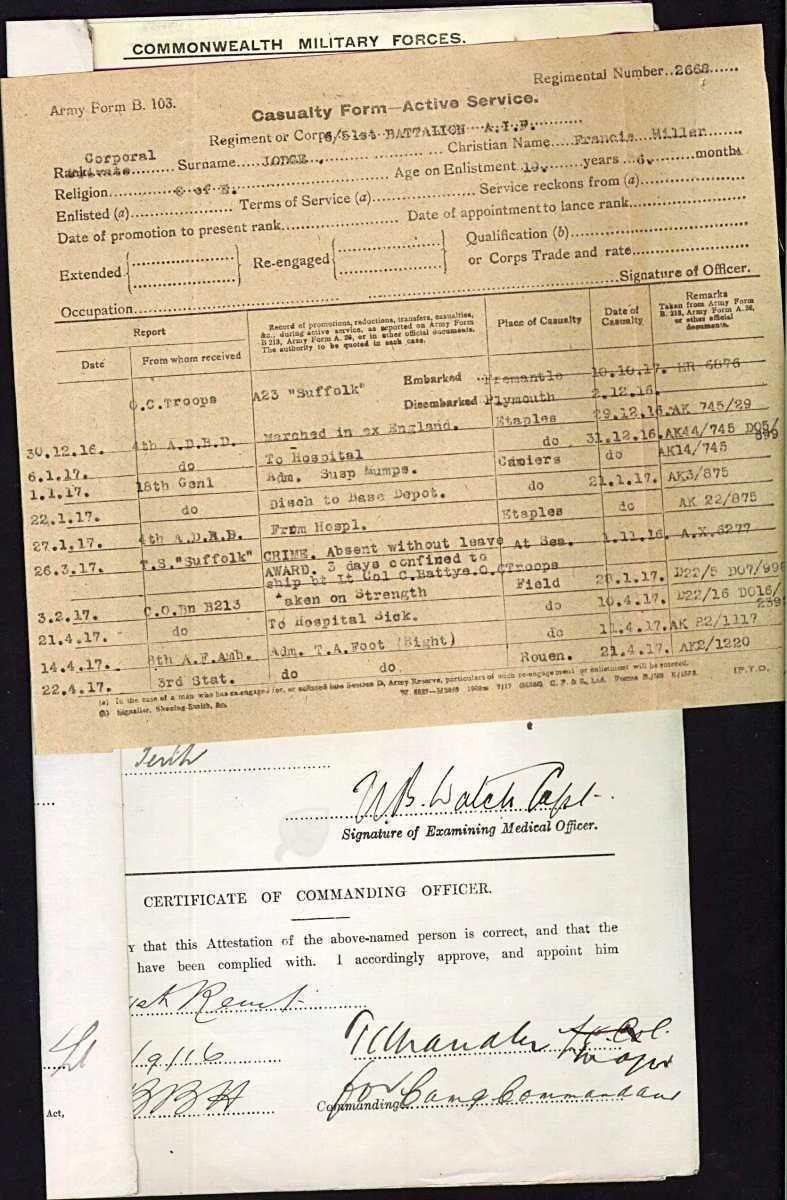 COMMONWEALTH MILITARY FORCES.
Army Form B. 103.
Regimental Number..2668......
Casualty Form—Active Service.
Regiment or Corps 6/51st BATTALION A.I.F.
Corporal
Rank Private Surname JODCE. Christian Name Francis Miller
Religion C of E. Age on Enlistment 19. years 6. months
Enlisted (a) Terms of Service (a) Service reckons from (a)
Date of promotion to present rank Date of appointment to lance rank
Extended Re-engaged Qualification (b)
or Corps Trade and rate
Occupation Signature of Officer.
Report
Date From whom received
Record of promotions, reductions, transfers, casualties, &c., during active service, as reported on Army Form B 213, Army Form A. 36, or in other official documents. The authority to be quoted in each case.
Place of Casualty
Date of Casualty
Remarks
Taken from Army Form B. 213, Army Form A. 36, or other official documents.
O.C. Troops A23 "Suffolk" Embarked Fremantle 10.10.17. HR 6876
Disembarked Plymouth 2.12.16.
30.12.16. 4th A.D.B.D. Marched in ex England. Etaples 29.12.16. AK 745/29
6.1.17. do To Hospital do 31.12.16. AK44/745 DO5/
1.1.17. 18th Genl Adm. Susp Mumps. Camiers do AK14/745
22.1.17. do Disch to Base Depot. do 21.1.17. AK3/875
27.1.17. 4th A.D.B.D. From Hospl. Etaples do AK 22/875
26.3.17. T.S."Suffolk" CRIME. Absent without leave At Sea. 1.11.16. A.X.6277
AWARD. 3 days confined to
ship bt Lt Col C.Battye.O.C Troops
3.2.17. C.O.Bn B213 Taken on Strength Field 28.1.17. D22/5 DO7/998
21.4.17. do To Hospital Sick. do 10.4.17. D22/16 DO16/
14.4.17. 8th A.F.Amb. Adm. T.A.Foot (Right) do 11.4.17. AK 22/1117
22.4.17. 3rd Stat. do do Rouen. 21.4.17. AK2/1220
(a) In the case of a man who has re-engaged for, or enlisted into Section D, Army Reserve, particulars of such re-engagement or enlistment will be entered.
(b) Signaller, Shoeing-Smith, &c.
[P.T.O.
Perth
Capt.
Signature of Examining Medical Officer.
CERTIFICATE OF COMMANDING OFFICER.
Y that this Attestation of the above-named person is correct, and that the
have been complied with. I accordingly approve, and appoint him
Major
for Camp Commandant
Commanding
Act,